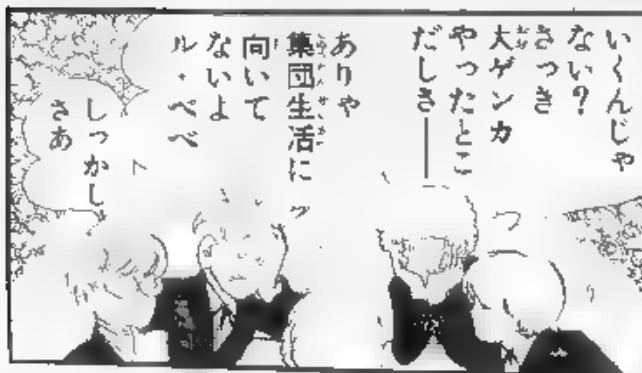 いくんじゃ
ない？
さっき
大ゲンカ
やったとこ
だしさ──
ありゃ
集団生活に
向いて
ないよ
ル・ベベ
しっかし
さあ